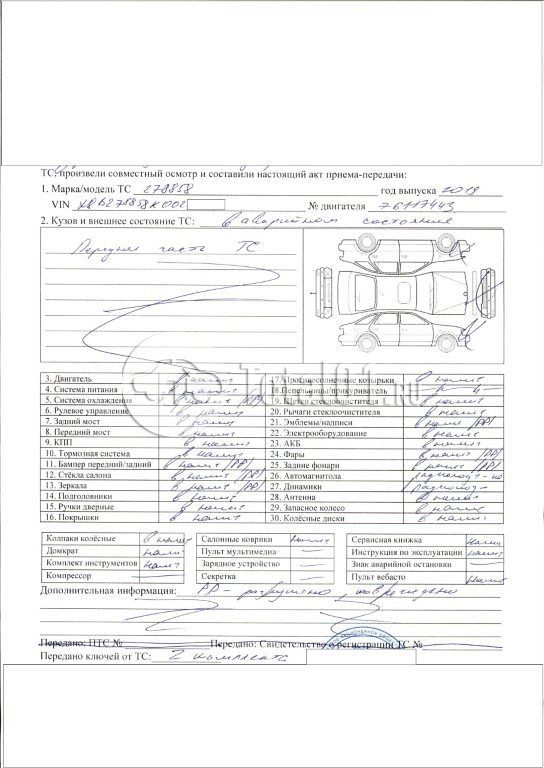 ТС, произвели совместный осмотр и составили настоящий акт приема-передачи:
1. Марка/модель ТС 278858 год выпуска 2019
VIN X8B278858K002 № двигателя 76117443
2. Кузов и внешнее состояние ТС: в аварийном состоянии
Передняя часть ТС
3. Двигатель в налич 17. Противосолнечные козырьки в налич
4. Система питания в налич 18. Пепельницы/прикуриватель
5. Система охлаждения в налич /РР/ 19. Щётки стеклоочистителя в налич
6. Рулевое управление в налич 20. Рычаги стеклоочистителя в налич
7. Задний мост в налич 21. Эмблемы/надписи в налич /РР/
8. Передний мост в налич 22. Электрооборудование в налич
9. КПП в налич 23. АКБ в налич
10. Тормозная система в налич 24. Фары в налич /РР/
11. Бампер передний/задний в налич /РР/ 25. Задние фонари в налич /РР/
12. Стёкла салона в налич /РР/ 26. Автомагнитола
13. Зеркала в налич /РР/ 27. Динамики
14. Подголовники в налич 28. Антенна в налич
15. Ручки дверные в налич 29. Запасное колесо в налич
16. Покрышки в налич 30. Колёсные диски в налич
Колпаки колёсные в налич Салонные коврики налич Сервисная книжка налич
Домкрат налич Пульт мультимедиа — Инструкция по эксплуатации налич
Комплект инструментов налич Зарядное устройство — Знак аварийной остановки —
Компрессор — Секретка — Пульт вебасто налич
Дополнительная информация: РР – разрушено, повреждено
Передано: ПТС № Передано: Свидетельство о регистрации ТС №
Передано ключей от ТС: 2 комплекта